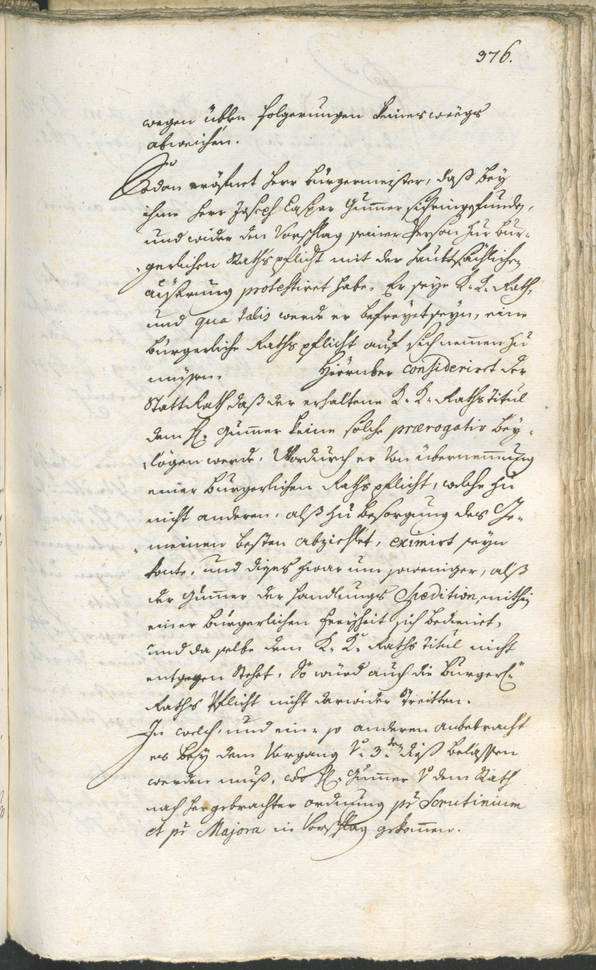 376.
wegen üblen folgerungen keinesweegs
abweichen.
Sodan eröfnet Herr Burgermeister, daß bey
ihme Herr Joseph Caspar Gummer sich eingefunden,
und wider den Vorschlag seiner Person zur bur-
gerlichen Raths pflicht mit der haubtsächlichen
äußerung protestiret habe. Er seye K. K. Rath,
und qua talis werde er befreyet seyn, eine
burgerliche Raths pflicht auf sich nemen zu
müssen. Hierüber consideriert der
StattRath daß der erhaltene K. K. Rathstitul
dem H. Gummer keine solche prærogativ bey-
legen werde, Wordurch er von übernemmung
einer burgerlichen Raths pflicht, welche zu
nicht anderen, alß zu besorgung des Ge-
meinen besten abziehlet, eximirt seyn
könte, und dises zwar um so weniger, alß
der Gummer der handlungs Spedition, mithin
einer burgerlichen freyheit sich bedienet,
und da selbe dem K. K. Raths titul nicht
entgegen stehet, So würd auch die burgerl:
Raths Pflicht nicht darwider streitten.
In welch- und ein so anderen anbetracht
es bey dem Vorgang v. 3.ten diß belassen
werden muß, wo H. Gummer v. dem Rath
nach hergebrachter ordnung pr Scrutinium
et pr Majora in Vorschlag gekommen.